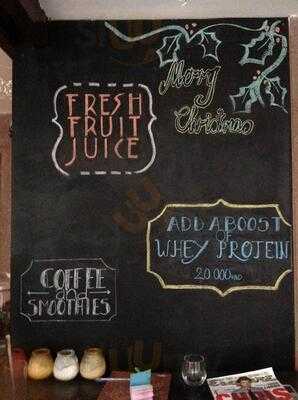 Mary
Christmas
FRESH
FRUIT
JUICE
ADD A BOOST
OF
WHEY PROTEIN
20.000 VND
COFFEE
and
SMOOTHIES